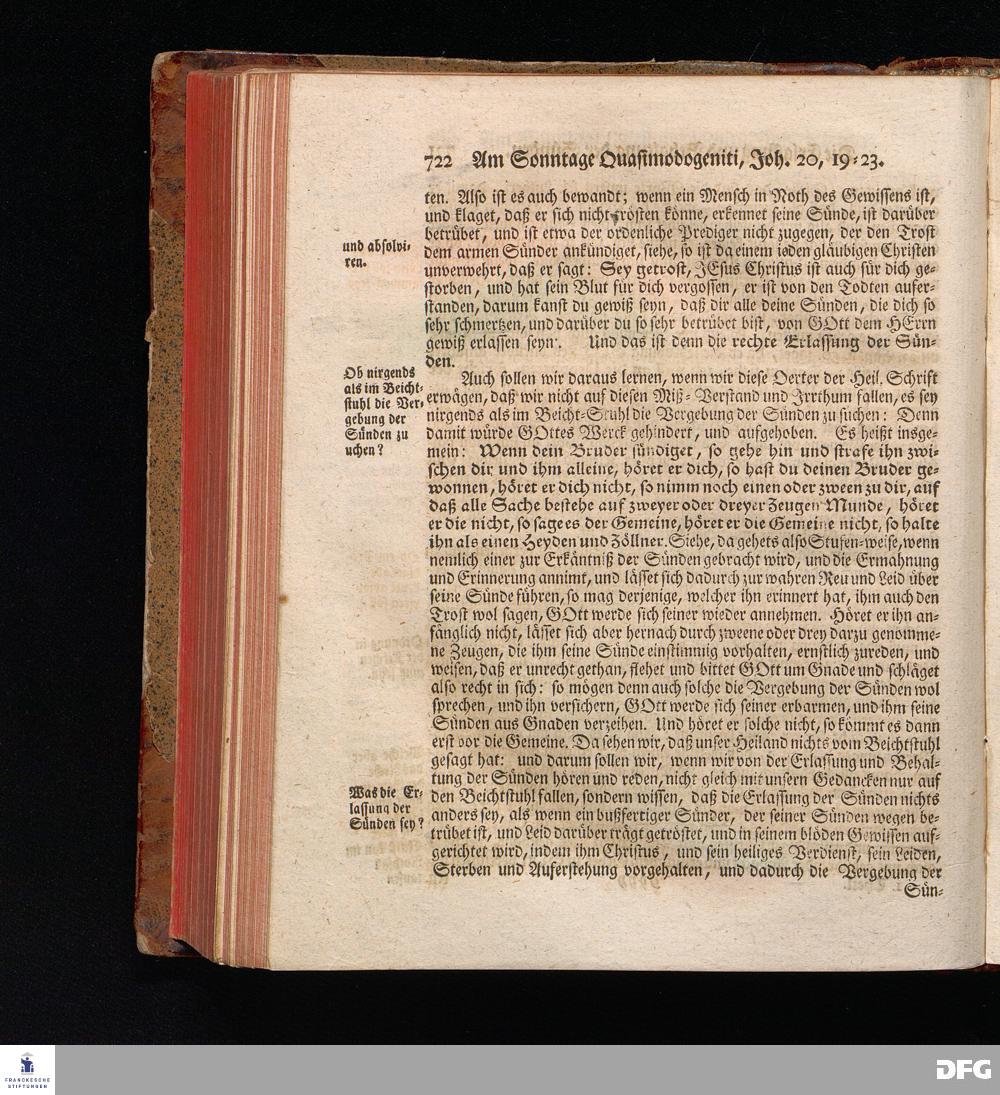 722 Am Sonntage Quasimodogeniti, Joh. 20, 19-23.
ten. Also ist es auch bewandt; wenn ein Mensch in Noth des Gewissens ist,
und klaget, daß er sich nicht trösten könne, erkennet seine Sünde, ist darüber
betrübet, und ist etwa der ordenliche Prediger nicht zugegen, der den Trost
und absolvi-
ren.
dem armen Sünder ankündiget, siehe, so ist da einem ieden gläubigen Christen
unverwehrt, daß er sagt: Sey getrost, JEsus Christus ist auch für dich ge-
storben, und hat sein Blut für dich vergossen, er ist von den Todten aufer-
standen, darum kanst du gewiß seyn, daß dir alle deine Sünden, die dich so
sehr schmertzen, und darüber du so sehr betrübet bist, von GOtt dem HErrn
gewiß erlassen seyn. Und das ist denn die rechte Erlassung der Sün-
den.
Ob nirgends
als im Beicht-
stuhl die Ver-
gebung der
Sünden zu
uchen?
Auch sollen wir daraus lernen, wenn wir diese Oerter der Heil. Schrift
erwägen, daß wir nicht auf diesen Miß-Verstand und Irrthum fallen, es sey
nirgends als im Beicht-Stuhl die Vergebung der Sünden zu suchen: Denn
damit würde GOttes Werck gehindert, und aufgehoben. Es heißt insge-
mein: Wenn dein Bruder sündiget, so gehe hin und strafe ihn zwi-
schen dir und ihm alleine, höret er dich, so hast du deinen Bruder ge-
wonnen, höret er dich nicht, so nimm noch einen oder zween zu dir, auf
daß alle Sache bestehe auf zweyer oder dreyer Zeugen Munde, höret
er die nicht, so sage es der Gemeine, höret er die Gemeine nicht, so halte
ihn als einen Heyden und Zöllner. Siehe, da gehets also Stufen-weise, wenn
nemlich einer zur Erkäntniß der Sünden gebracht wird, und die Ermahnung
und Erinnerung annimt, und lässet sich dadurch zur wahren Reu und Leid über
seine Sünde führen, so mag derjenige, welcher ihn erinnert hat, ihm auch den
Trost wol sagen, GOtt werde sich seiner wieder annehmen. Höret er ihn an-
fänglich nicht, lässet sich aber hernach durch zweene oder drey darzu genomme-
ne Zeugen, die ihm seine Sünde einstimmig vorhalten, ernstlich zureden, und
weisen, daß er unrecht gethan, flehet und bittet GOtt um Gnade und schläget
also recht in sich: so mögen denn auch solche die Vergebung der Sünden wol
sprechen, und ihn versichern, GOtt werde sich seiner erbarmen, und ihm seine
Sünden aus Gnaden verzeihen. Und höret er solche nicht, so kömmt es dann
erst vor die Gemeine. Da sehen wir, daß unser Heiland nichts vom Beichtstuhl
gesagt hat: und darum sollen wir, wenn wir von der Erlassung und Behal-
tung der Sünden hören und reden, nicht gleich mit unsern Gedancken nur auf
Was die Er-
lassung der
Sünden sey?
den Beichtstuhl fallen, sondern wissen, daß die Erlassung der Sünden nichts
anders sey, als wenn ein bußfertiger Sünder, der seiner Sünden wegen be-
trübet ist, und Leid darüber trägt getröstet, und in seinem blöden Gewissen auf-
gerichtet wird, indem ihm Christus, und sein heiliges Verdienst, sein Leiden,
Sterben und Auferstehung vorgehalten, und dadurch die Vergebung der
Sün-
FRANCKESCHE
STIFTUNGEN
DFG